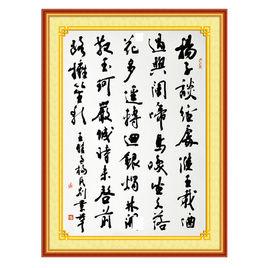 楊子談經處淮王載酒
過興闌啼鳥喚坐久落
花多逕轉迴銀燭林開
散玉珂嚴城時未啓前
路擁笙歌 王維 楊氏別業